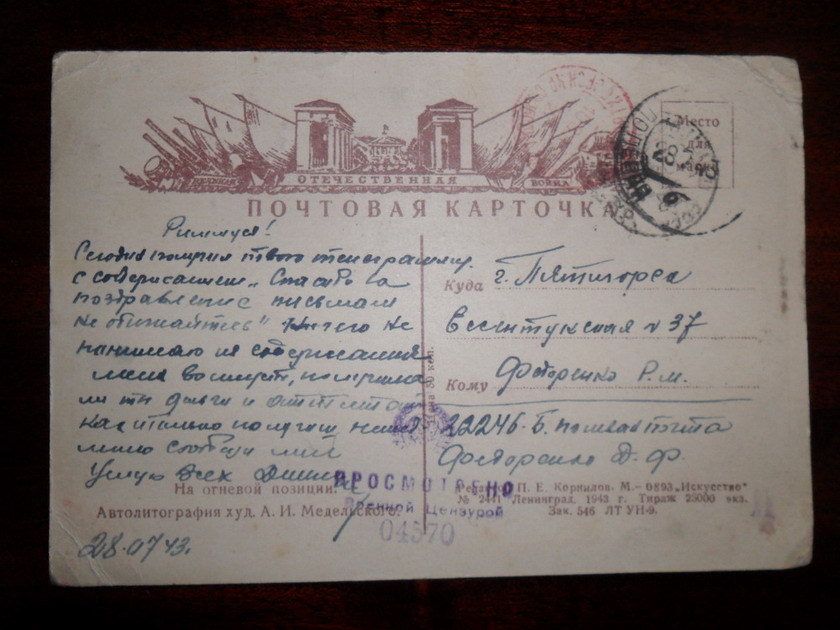 ВЕЛИКАЯ ОТЕЧЕСТВЕННАЯ ВОЙНА
Место
для
марки
ПОЧТОВАЯ КАРТОЧКА
28 7 43
Риммуся!
Сегодня получил твою телеграмму
с содержанием „Спасибо за
поздравление письмам
не обижайтесь" Ничего не
понимаю из содержания
меня интересует, получила
ли ты деньги и аттестат
как только получишь
сообщи мне
Целую всех
28.07.43.
Куда г. Пятигорск
Ессентукская № 37
Кому Федоренко Р. М.
22246-Б. полевая почта
Федоренко Д. Ф.
Цена 30 коп.
ПРОСМОТРЕНО
Военной Цензурой
04570
На огневой позиции.
Автолитография худ. А. И. Медельского.
Редактор П. Е. Корнилов. М.—0893 „Искусство"
№ 2441 Ленинград, 1943 г. Тираж 25000 экз.
Зак. 546 ЛТ УН-9.